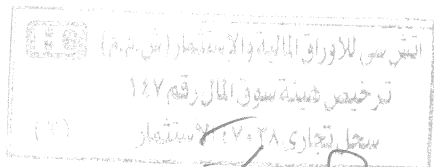 اتش سي للأوراق المالية والاستثمار (ش.م.م)
ترخيص هيئة سوق المال رقم ١٤٧
سجل تجاري ٤٧٠٢٨ الاستثمار (٢)